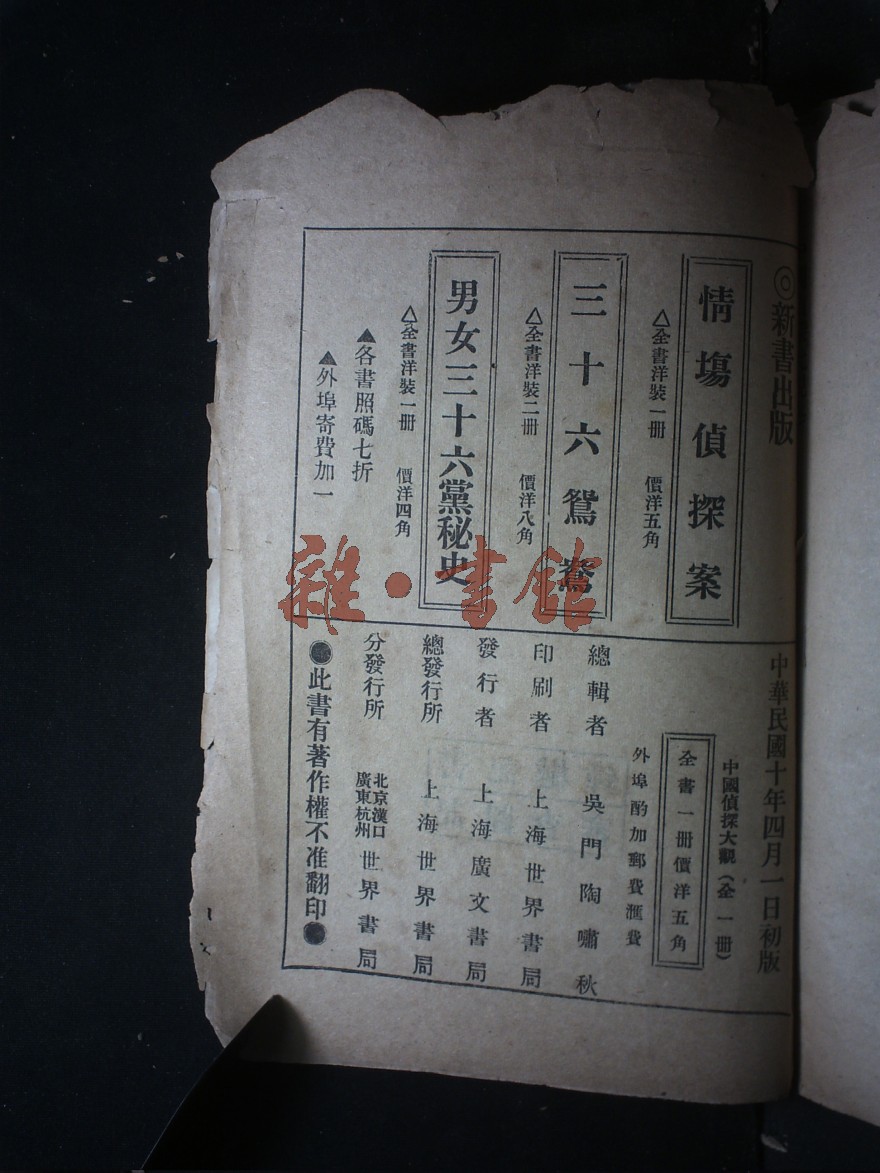 ◎新書出版
情塲偵探案
△全書洋裝一册　價洋五角
三十六鴛鴦
△全書洋裝二册　價洋八角
男女三十六黨秘史
△全書洋裝一册　價洋四角
▲各書照碼七折
▲外埠寄費加一
中華民國十年四月一日初版
中國偵探大觀（全一册）
全書一册價洋五角
外埠酌加郵費滙費
總輯者　吳門陶嘯秋
印刷者　上海世界書局
發行者　上海廣文書局
總發行所　上海世界書局
分發行所　北京漢口廣東杭州世界書局
●此書有著作權不准翻印●
雜·書館